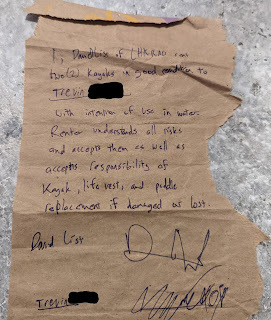 I, David List of
two (2) Kayaks in good condition to
Trevin
with intention of use in waters.
Rentor understands all risks
and accepts them as well as
accepts responsibility of
Kayak, life vest, and paddle
replacement if damaged or lost.
David List
Trevin